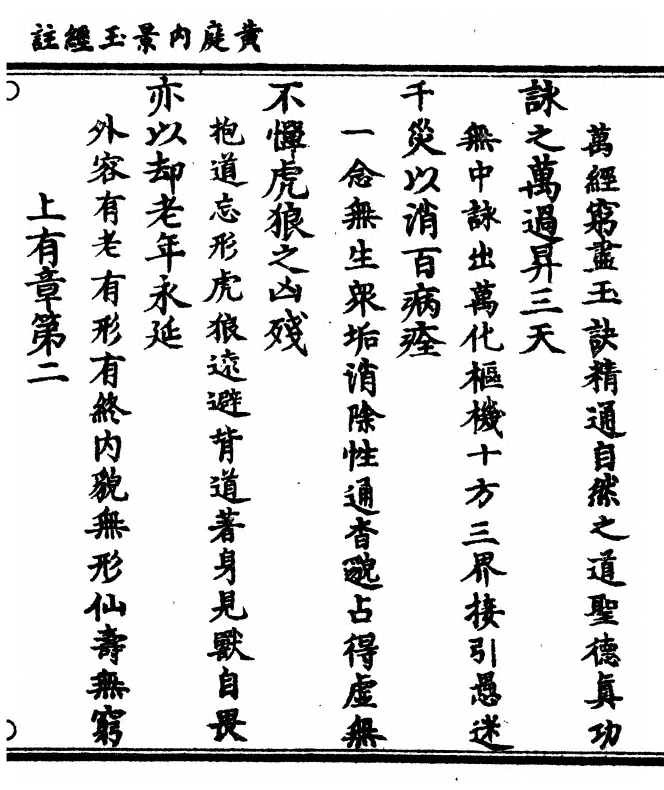 黄庭内景玉經註
萬經窮盡玉訣精通自然之道聖德眞功
詠之萬過昇三天
無中詠出萬化樞機十方三界接引愚迷
千災以消百病痊
一念無生衆垢消除性通杳䫉占得虛無
不憚虎狼之凶殘
抱道忘形虎狼遠避背道著身見獸自畏
亦以却老年永延
外容有老有形有終內貌無形仙壽無窮
上有章第二